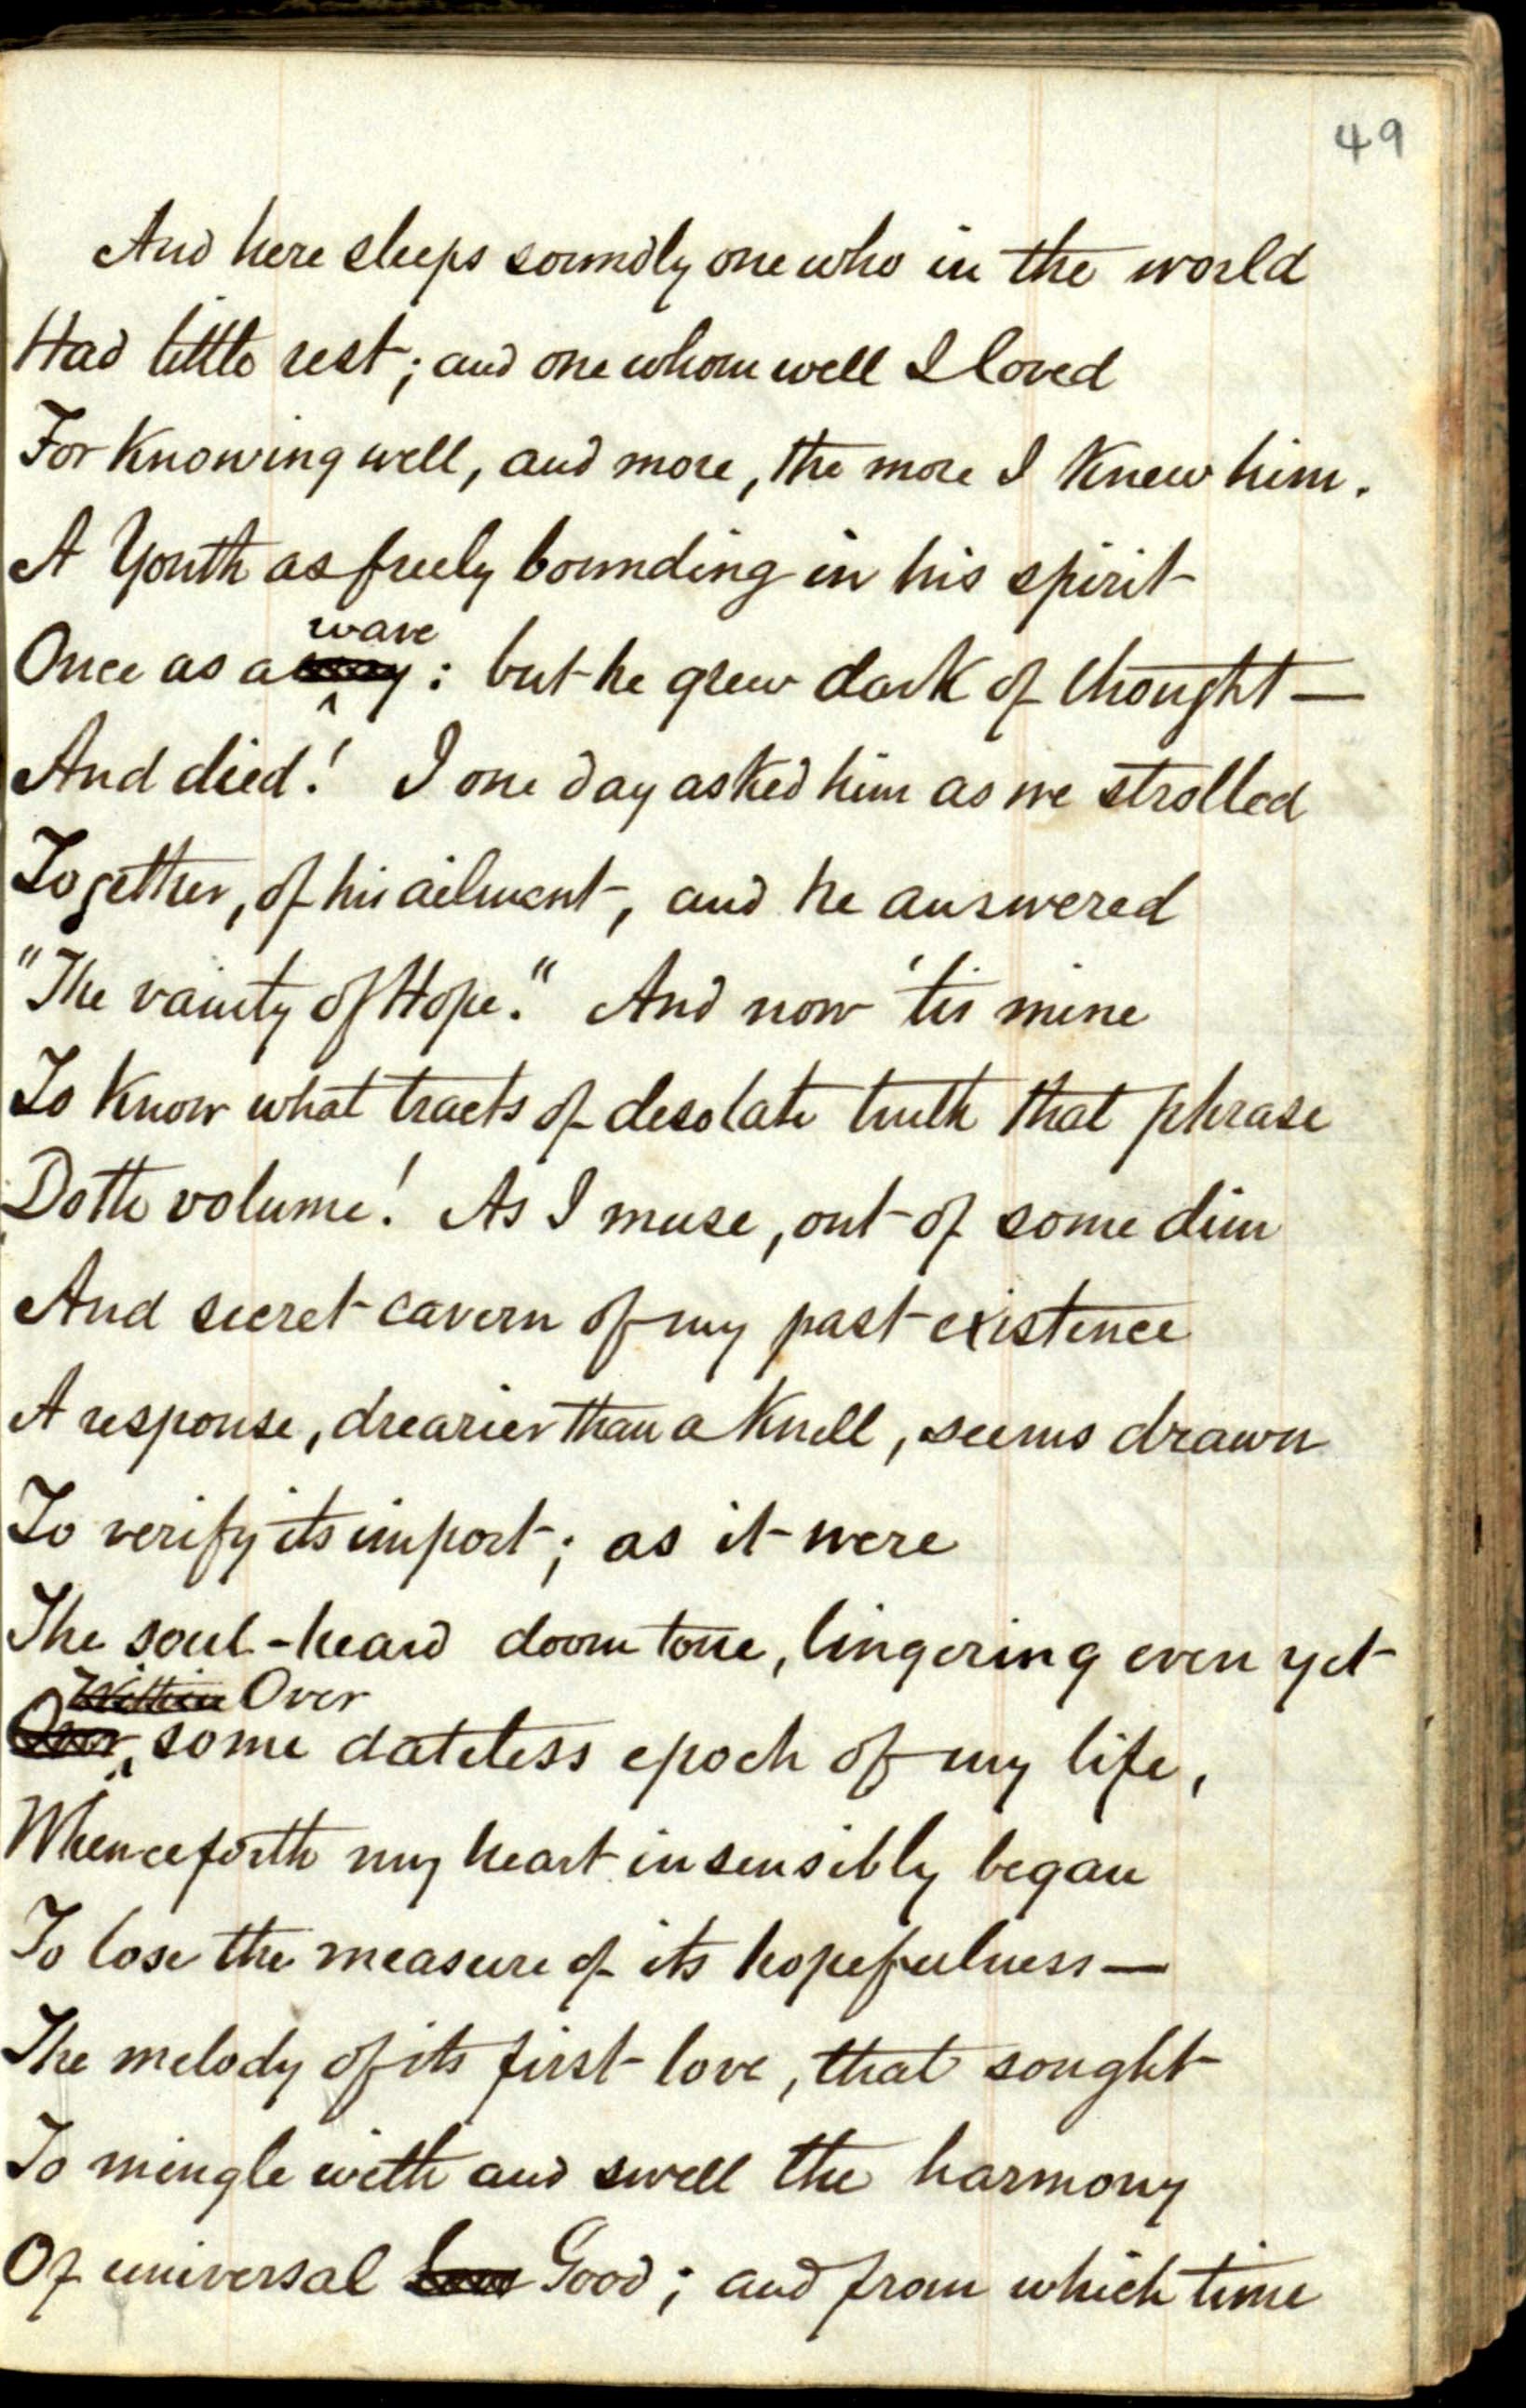 49
And here sleeps soundly one who in the world
Had little rest; and one whom well I loved
For knowing well, and more, the more I knew him.
A Youth as freely bounding in his spirit
wave
Once as a : but he grew dark of thought —
And died! I one day asked him as we strolled
Together, of his ailment, and he answered
"The vainty of Hope." And now 'tis mine
To know what tracts of desolate truth that phrase
Doth volume! As I muse, out of some dim
And secret cavern of my past existence
A response, drearier than a knell, seems drawn
To verify its import; as it were
The soul-heard doom tone, lingering even yet
Within Over
Over some dateless epoch of my life,
Whenceforth my heart insensibly began
To lose the measure of its hopefulness —
The melody of its first love, that sought
To mingle with and swell the harmony
Of universal Love Good; and from which time